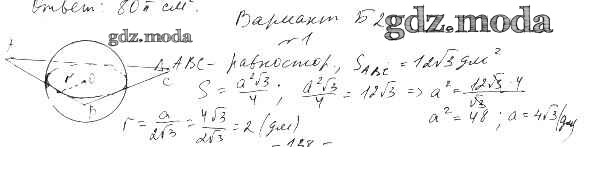 Ответ: 80π см².
Вариант Б2
gdz.moda
gdz.moda
№1
A
r
O
B
C
△ABC - равностор, S_ABC = 12√3 дм²
S = a²√3/4 ; a²√3/4 = 12√3 => a² = 12√3·4/√3
a² = 48 ; a = 4√3 (дм)
r = a/2√3 = 4√3/2√3 = 2 (дм)
- 128 -